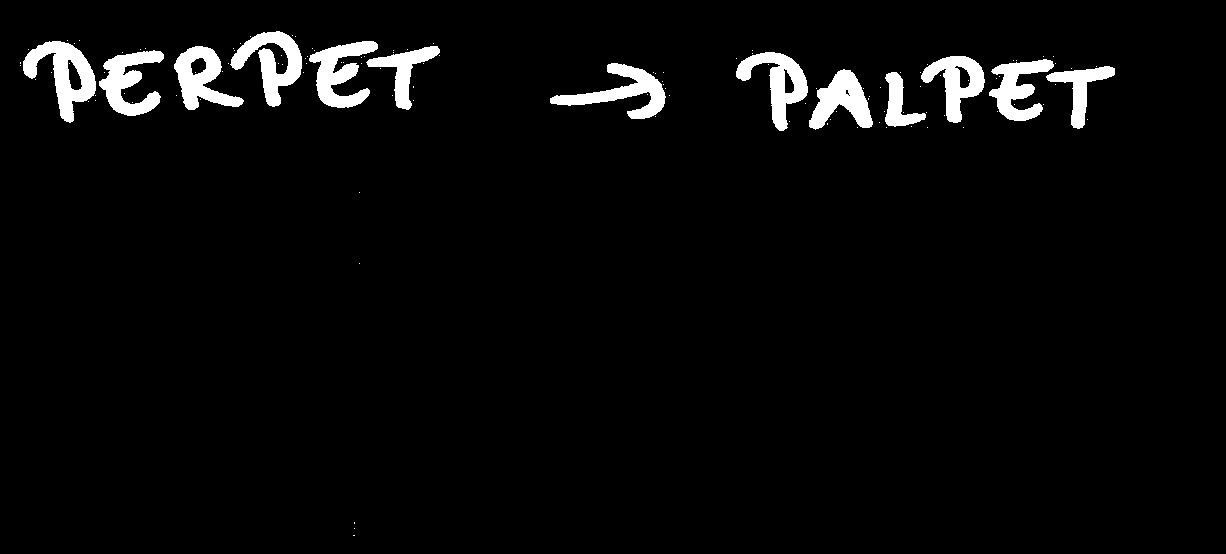 PERPET → PALPET